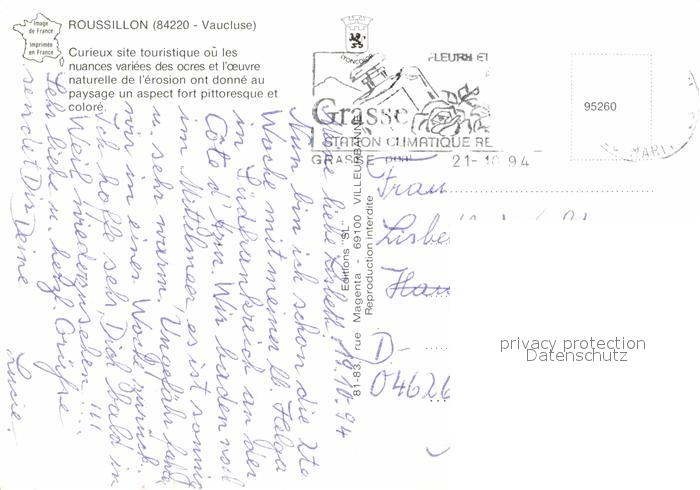 Image
de France
Imprimée
en France
ROUSSILLON (84220 - Vaucluse)
Curieux site touristique où les
nuances variées des ocres et l'œuvre
naturelle de l'érosion ont donné au
paysage un aspect fort pittoresque et
coloré.
FLEURS ET
Grasse
STATION CLIMATIQUE RE
GRASSE
21-10 94
95260
Editions "SL"
81-83, rue Magenta - 69100 VILLEURBANNE
Reproduction interdite
19.10.94
Meine liebe Lisbeth!
Nun bin ich schon die 2te
Woche mit meiner lb. Helga
in Südfrankreich an der
Côte d'Azur. Wir baden noch
im Mittelmeer, es ist sonnig
u. sehr warm. Ungefähr fahren
wir in einer Woche zurück.
Ich hoffe sehr, Dich bald in
Weil wiederzusehen!!!
Sehr liebe u. herzl. Grüße
sendet Dir Deine
Lucie.
Frau
Lisbe
Hau
D-
04626
privacy protection
Datenschutz